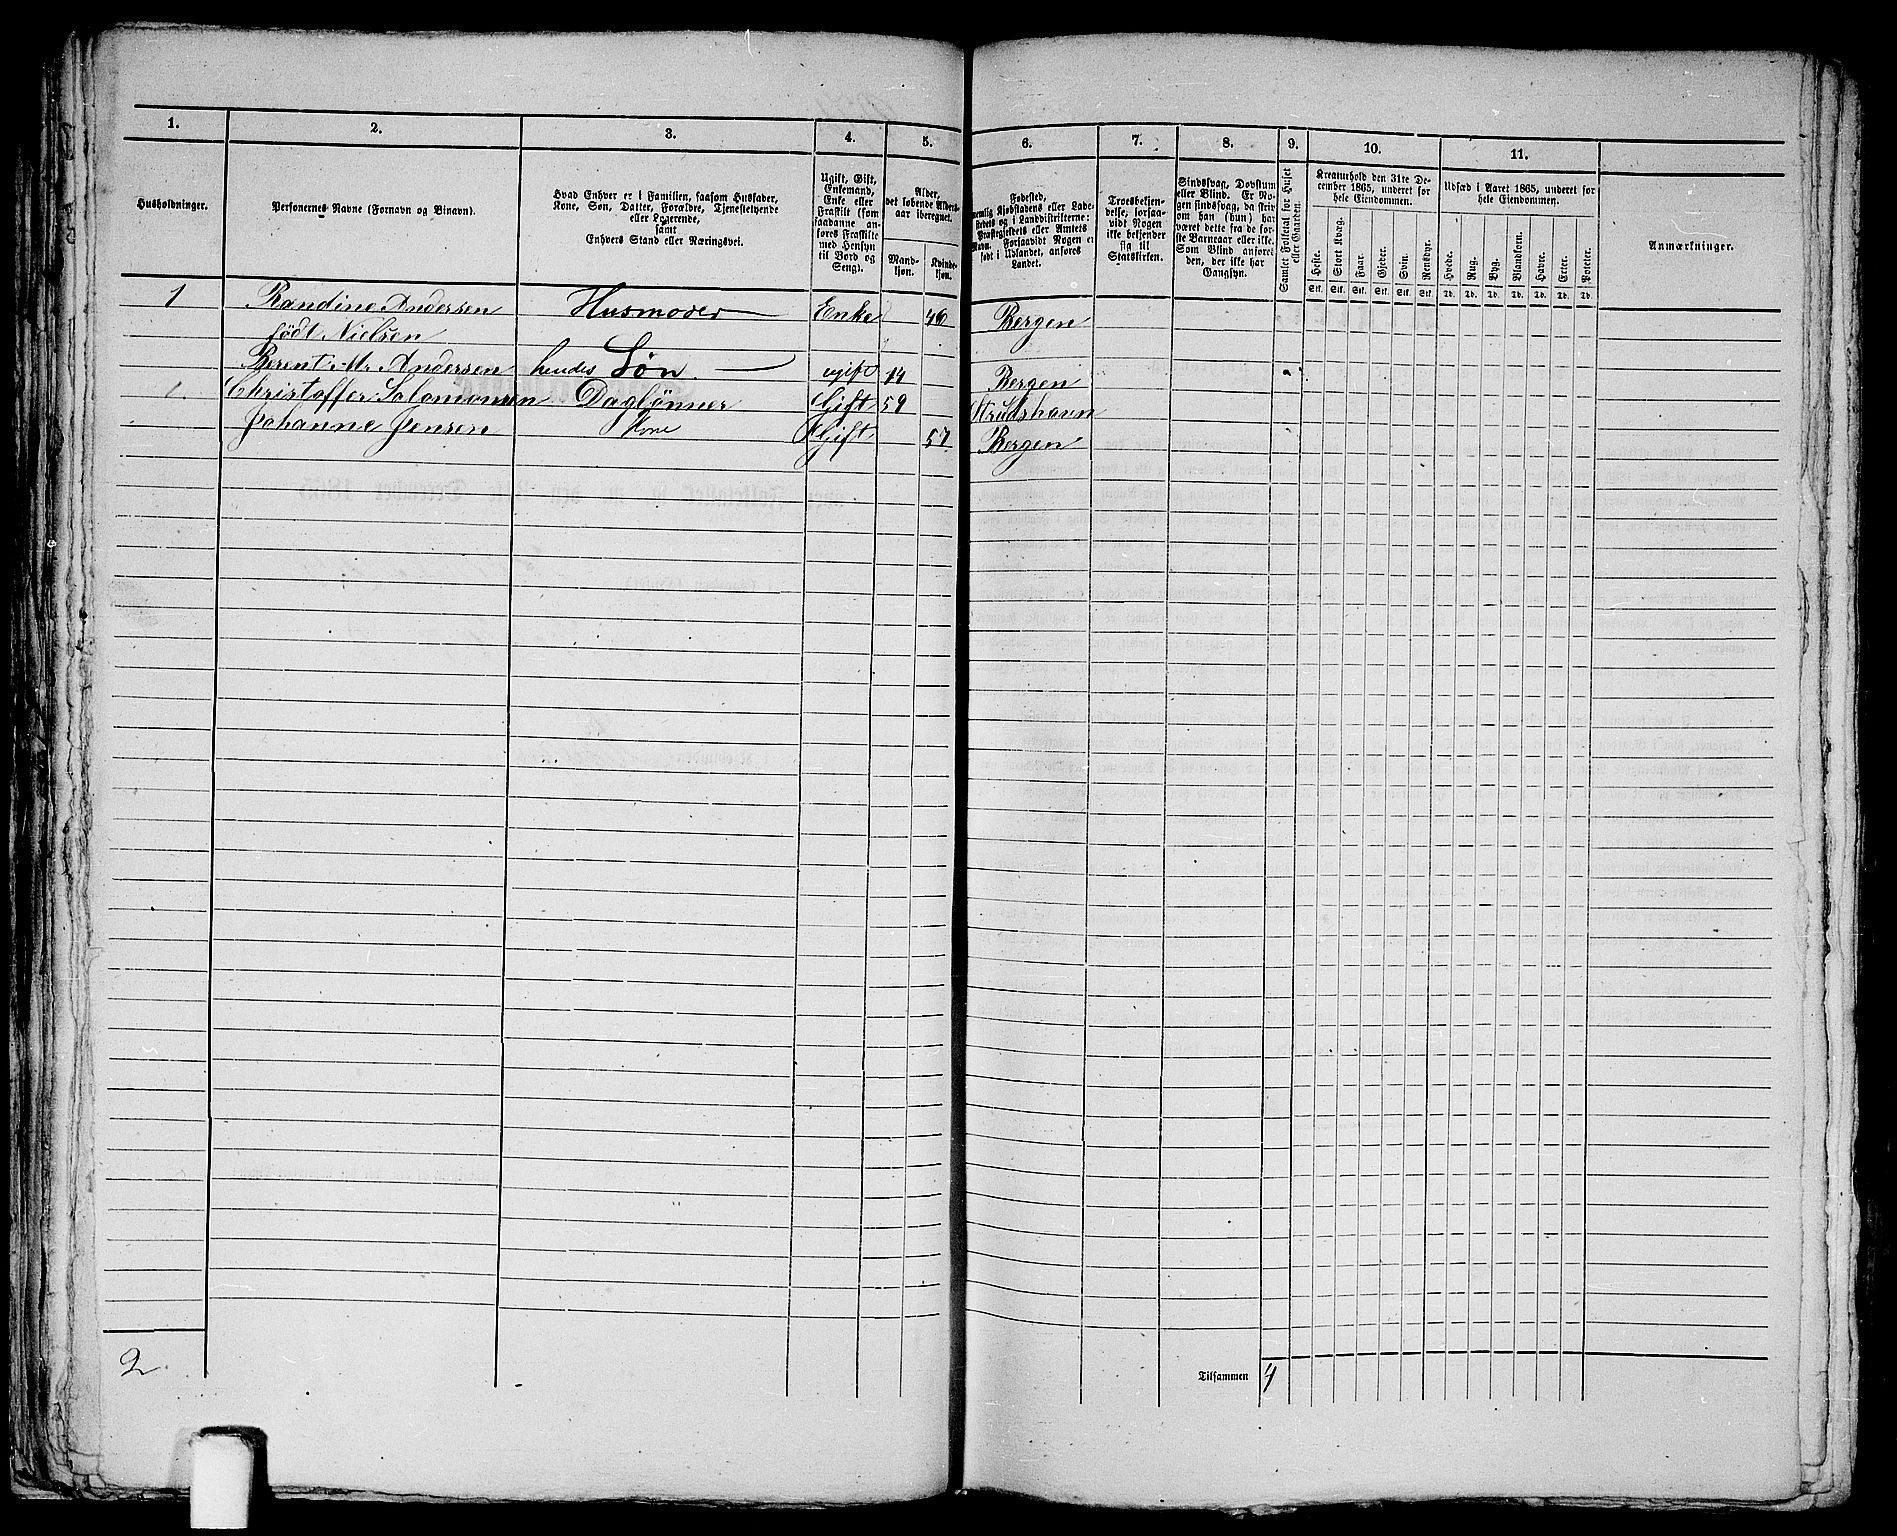 1. 2. 3. 4. 5. 6. 7. 8. 9. 10. 11.
Husholdninger.
Personernes Navne (Fornavn og Binavn).
Hvad Enhver er i Familien, saasom Husfader,
Kone, Søn, Datter, Forældre, Tjenestetyende
eller Logerende,
samt
Enhvers Stand eller Næringsvei.
Ugift, Gift,
Enkemand,
Enke eller
Fraskilt (som
saadanne an-
føres Fraskilte
med Hensyn
til Bord og
Seng).
Alder,
det løbende Alders-
aar iberegnet.
Mand-
kjøn.
Kvinde-
kjøn.
Fødested,
nemlig Kjøbstadens eller Lade-
stedets og i Landdistrikterne:
Præstegjeldets eller Amtets
Navn. Forsaavidt Nogen er
født i Udlandet, anføres
Landet.
Troesbekjen-
delse, forsaa-
vidt Nogen
ikke bekjender
sig til
Statskirken.
Sindssvag, Døvstum
eller Blind. Er No-
gen sindssvag, da skriv
om han (hun) har
været dette fra de før-
ste Barneaar eller ikke.
Som Blind anføres
den, der ikke har
Gangsyn.
Samlet Folketal for Huset
eller Gaarden.
Kreaturhold den 31te De-
cember 1865, underet for
hele Eiendommen.
Heste. Stort Kvæg. Faar. Gjeder. Svin. Rensdyr.
Stk. Stk. Stk. Stk. Stk. Stk.
Udsæd i Aaret 1865, underet for
hele Eiendommen.
Hvede. Rug. Byg. Blandkorn. Havre. Erter. Poteter.
Td. Td. Td. Td. Td. Td. Td.
Anmærkninger.
1 Randine Andersen Husmoder Enke 46 Bergen
født Nielsen
Berent M. Andersen hendes Søn. ugift 14 Bergen
1 Christoffer Salomonsen Daglønner Gift 59 Strudshavn
Johanne Jensen Kone Gift 57 Bergen
2
Tilsammen 4